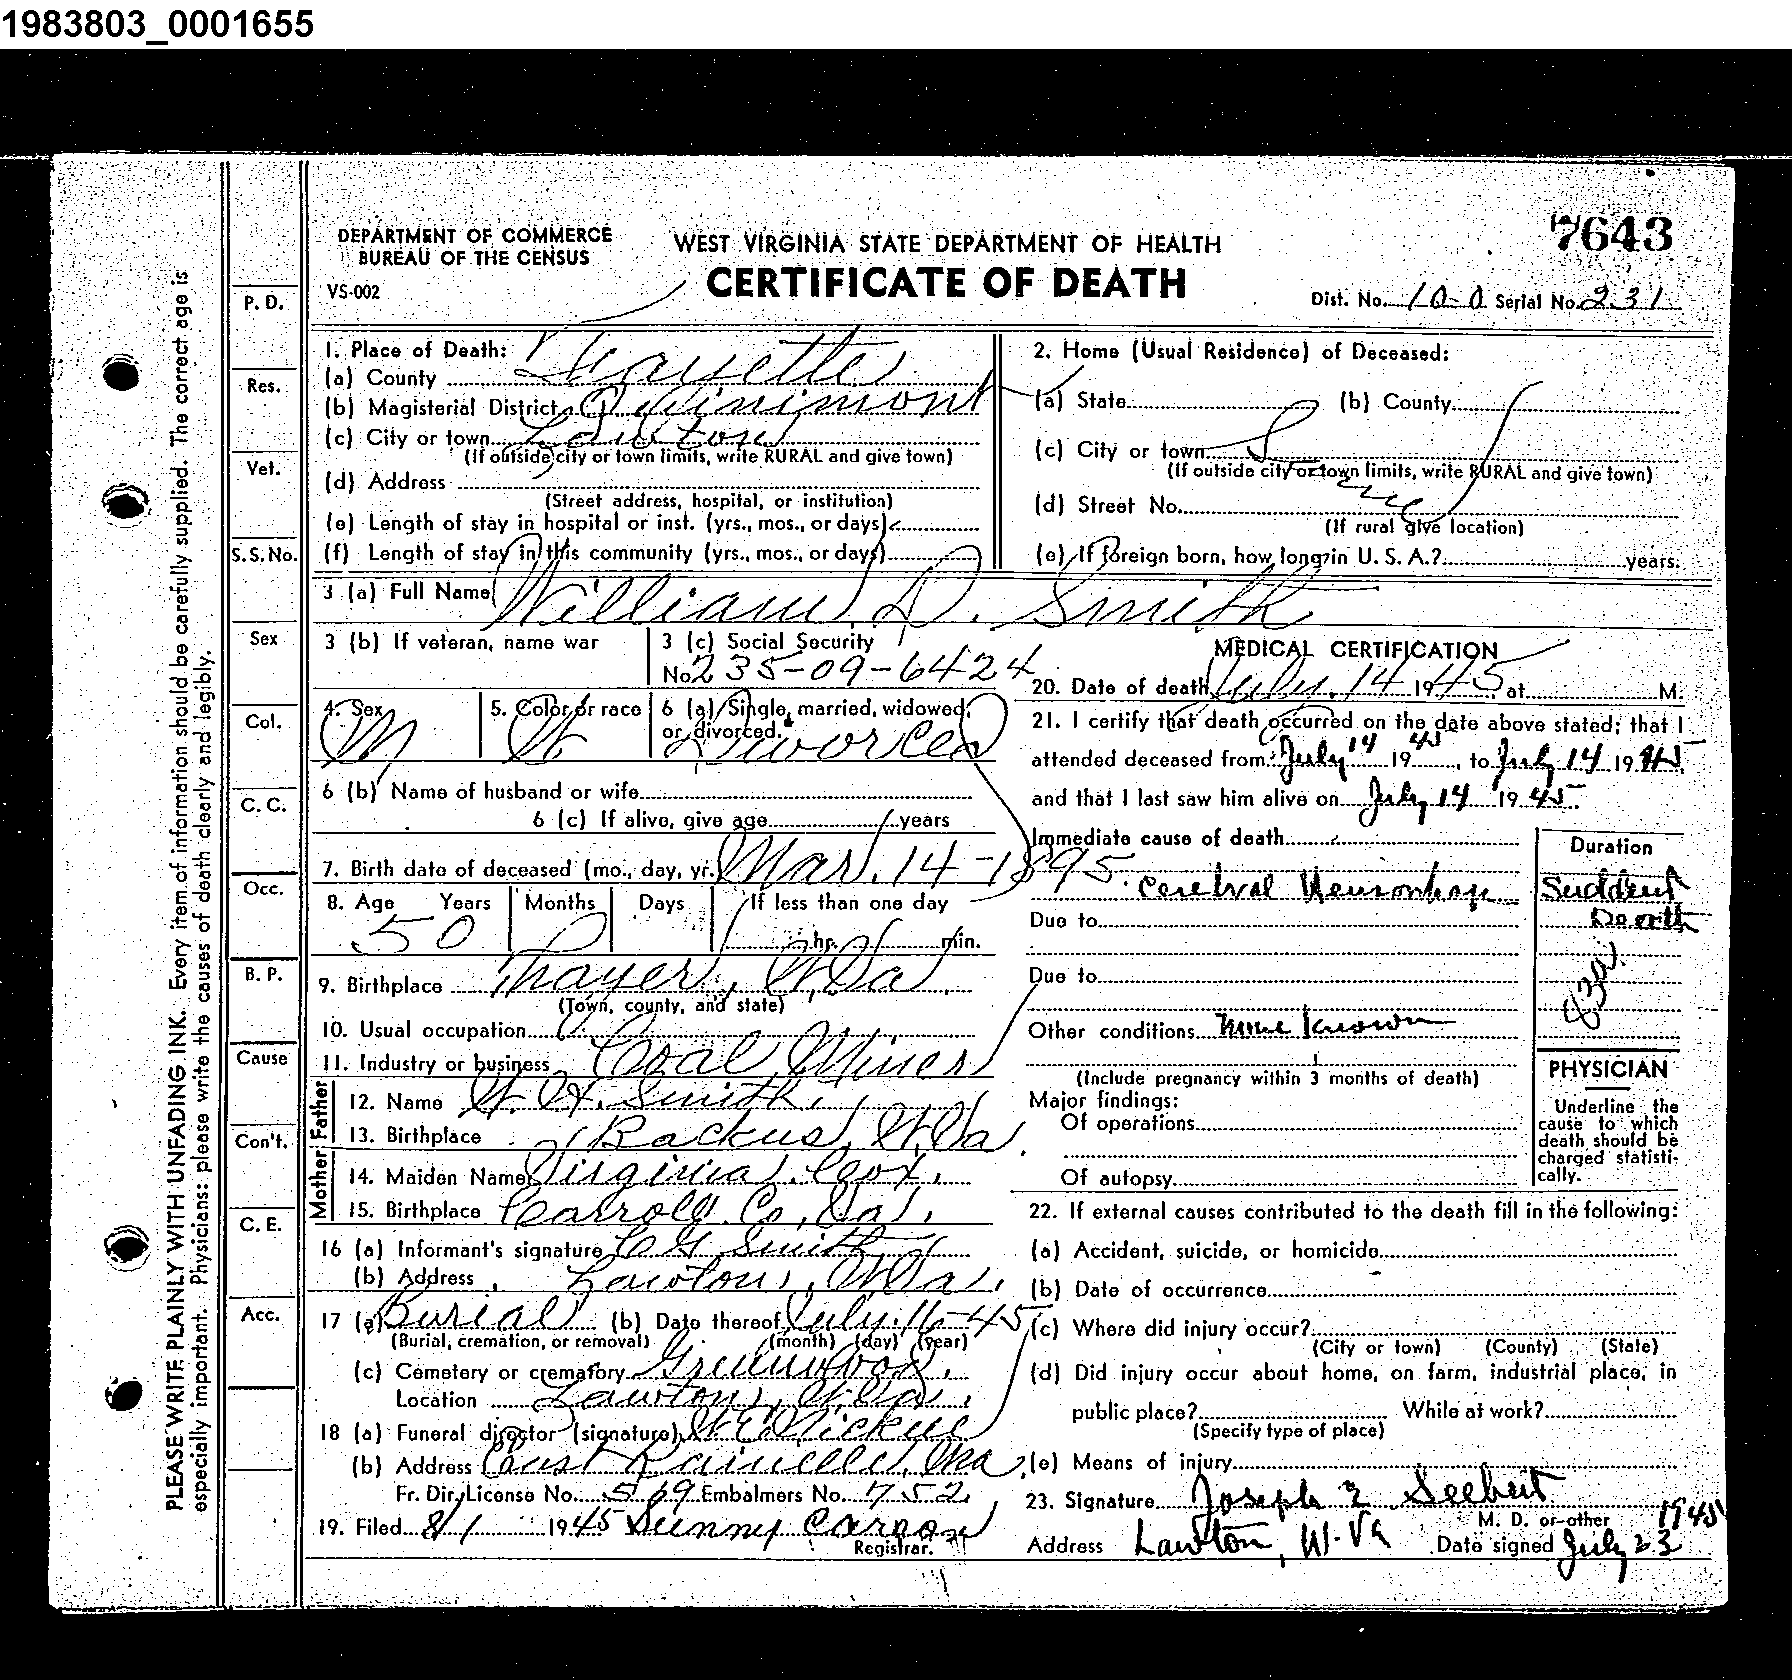 1983803_0001655
7643
DEPARTMENT OF COMMERCE
BUREAU OF THE CENSUS
VS-002
WEST VIRGINIA STATE DEPARTMENT OF HEALTH
CERTIFICATE OF DEATH
Dist. No. 10-0 Serial No. 231
PLEASE WRITE PLAINLY WITH UNFADING INK. Every item of information should be carefully supplied. The correct age is
especially important. Physicians: please write the causes of death clearly and legibly.
P. D.
Res.
Vet.
S.S. No.
Sex
Col.
C. C.
Occ.
B. P.
Cause
Con't.
C. E.
Acc.
1. Place of Death:
(a) County Fayette
(b) Magisterial District Quinnimont
(c) City or town Lawton
(If outside city or town limits, write RURAL and give town)
(d) Address
(Street address, hospital, or institution)
(e) Length of stay in hospital or inst. (yrs., mos., or days)
(f) Length of stay in this community (yrs., mos., or days)
2. Home (Usual Residence) of Deceased:
(a) State (b) County
(c) City or town
(If outside city or town limits, write RURAL and give town)
(d) Street No.
(If rural give location)
(e) If foreign born, how long in U. S. A.? years.
Same
3 (a) Full Name William D. Smith
3 (b) If veteran, name war
3 (c) Social Security
No. 235-09-6424
4. Sex M
5. Color or race W
6 (a) Single, married, widowed,
or divorced. Divorced
6 (b) Name of husband or wife
6 (c) If alive, give age years
7. Birth date of deceased (mo., day, yr.) Mar. 14-1895.
8. Age Years Months Days If less than one day
50 hr. min.
9. Birthplace Thayer, W.Va.
(Town, county, and state)
10. Usual occupation
11. Industry or business Coal Miner
Father
12. Name W. H. Smith.
13. Birthplace Backus, W.Va.
Mother
14. Maiden Name Virginia Cox.
15. Birthplace Carroll Co, Va.
16 (a) Informant's signature C G Smith
(b) Address Lawton, W.Va.
17 (a) Burial (b) Date thereof July. 16-45
(Burial, cremation, or removal) (month) (day) (year)
(c) Cemetery or crematory Greenwood.
Location Lawton, W.Va.
18 (a) Funeral director (signature)
(b) Address East Rainelle, W.Va
Fr. Dir. License No. 569 Embalmers No. 752
19. Filed 8/1 1945 Sunny Carson
Registrar.
MEDICAL CERTIFICATION
20. Date of death July. 14 1945 at M.
21. I certify that death occurred on the date above stated; that I
attended deceased from July 14 1945, to July 14 1945
and that I last saw him alive on July 14 1945.
Immediate cause of death
Cerebral Hemorrhage
Due to
Due to
Other conditions None Known
(Include pregnancy within 3 months of death)
Major findings:
Of operations
Of autopsy
Duration
Sudden
Death
83a
PHYSICIAN
Underline the
cause to which
death should be
charged statisti-
cally.
22. If external causes contributed to the death fill in the following:
(a) Accident, suicide, or homicide
(b) Date of occurrence
(c) Where did injury occur?
(City or town) (County) (State)
(d) Did injury occur about home, on farm, industrial place, in
public place? While at work?
(Specify type of place)
(e) Means of injury
23. Signature Joseph Z Seebert
M. D. or other
Address Lawton, W-Va Date signed July 23 1945